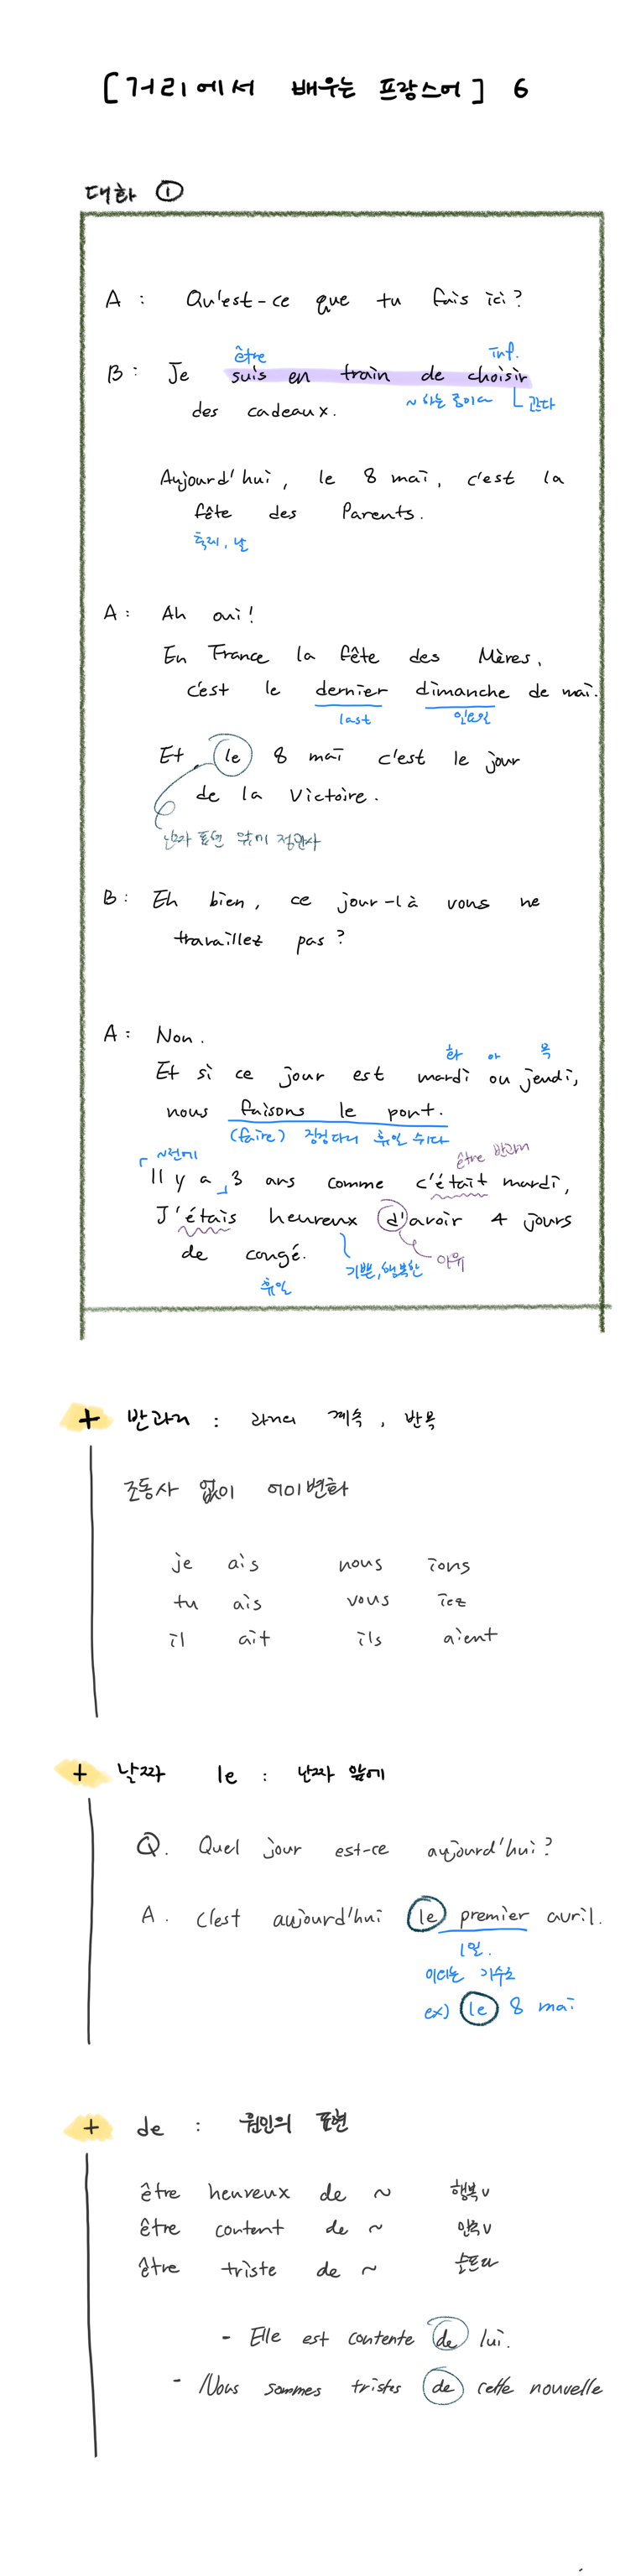 [거리에서 배우는 프랑스어] 6
대화 ①
A : Qu'est-ce que tu fais ici?
être inf.
B : Je suis en train de choisir
~하는 중이다
des cadeaux.
Aujourd'hui, le 8 mai, c'est la
fête des Parents.
축제, 날
A : Ah oui!
En France la fête des Mères,
c'est le dernier dimanche de mai.
last 일요일
Et le 8 mai c'est le jour
de la Victoire.
날짜 표현 앞에 정관사
B : Eh bien, ce jour-là vous ne
travaillez pas?
A : Non.
화 or 목
Et si ce jour est mardi ou jeudi,
nous faisons le pont.
(faire) 징검다리 휴일 쉬다
~전에 être 반과거
Il y a 3 ans comme c'était mardi,
J'étais heureux d'avoir 4 jours
de congé. 기쁜, 행복한 이유
휴일
+ 반과거 : 과거의 계속, 반복
조동사 없이 어미변화
je ais nous ions
tu ais vous iez
il ait ils aient
+ 날짜 le : 날짜 앞에
Q. Quel jour est-ce aujourd'hui?
A. C'est aujourd'hui le premier avril.
1일.
이외는 기수로
ex) le 8 mai
+ de : 원인의 표현
être heureux de ~ 행복v
être content de ~ 만족v
être triste de ~ 슬프다
- Elle est contente de lui.
- Nous sommes tristes de cette nouvelle